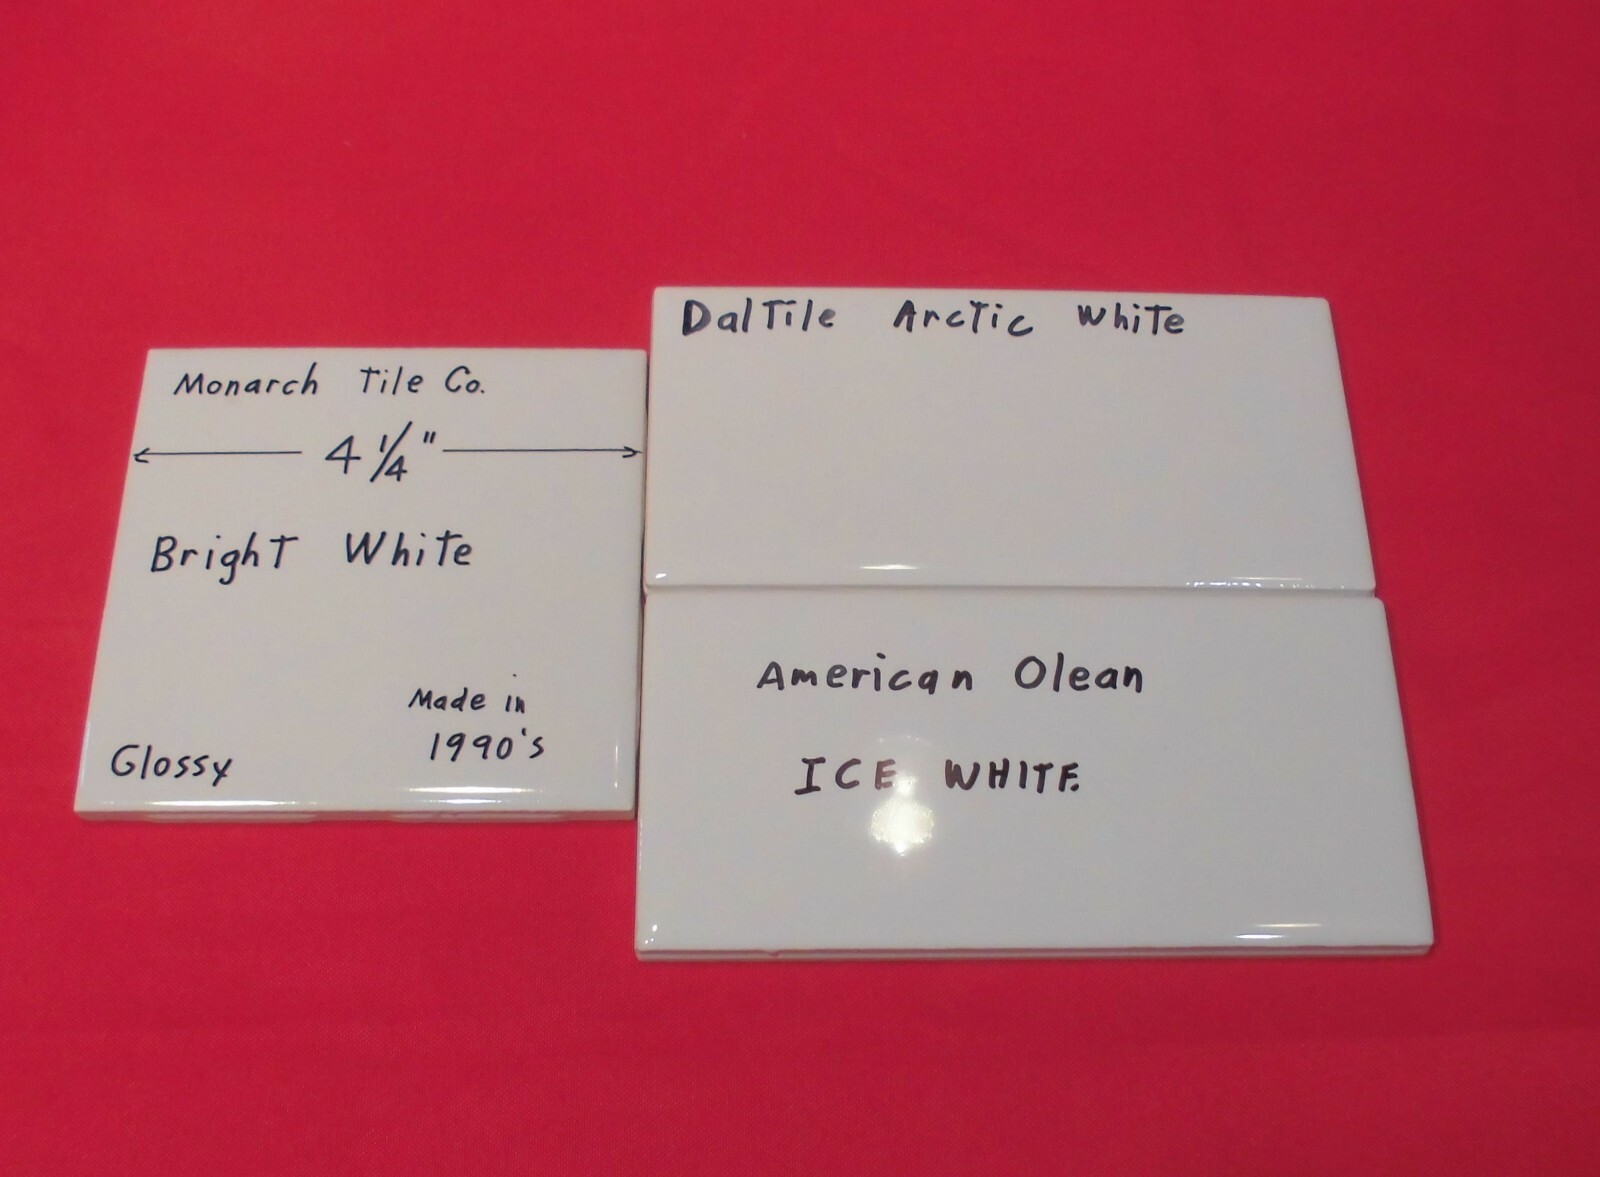 Monarch Tile Co.
4 1/4"
Bright White
Made in
1990's
Glossy
DalTile Arctic White
American Olean
ICE WHITE